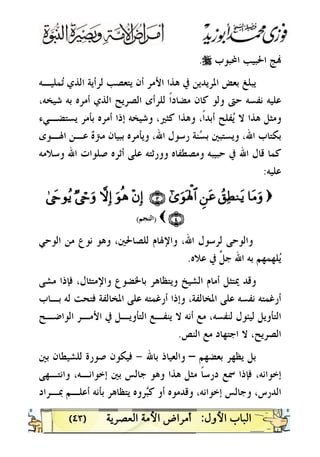 فوزى محمد أبو زيد
أمراض الأمة وبصيرة النبوة
نهج الحبيب المحبوب ﷺ.
يبلغ بعض المريدين في هذا الأمر أن يتعصب لرأية الذي تُمليـــه
عليه نفسه حتى ولو كان مضاداً للرأى الصريح الذي أمره به شيخه،
ومثل هذا لا يُفلح أبداً، وهذا كثير، وشيخه إذا أمره بأمر يستضـــيء
بكتاب الله، ويستبين بسُنة رسول الله، ويأمره ببيان منزهٌ عـــن الهـــوى
كما قال الله في حبيبه ومصطفاه وورثته على أثره صلوات الله وسلامه
عليه:
﴿ وَمَا يَنطِقُ عَنِ ٱلْهَوَىٰٓ ۝٣ إِنْ هُوَ إِلَّا وَحْىٌ يُوحَىٰ
۝٤ ﴾ (النجم)
والوحى لرسول الله، والإلهام للصالحين، وهو نوع من الوحي
يُلهمهم به الله جلَّ في علاه.
وقد يمتثل أمام الشيخ ويتظاهر بالخضوع والإمتثال، فإذا مشـى
أرغمته نفسه على المخالفة، وإذا أرغمته على المخالفة فتحت له بـــاب
التأويل ليئول لنفسه، مع أنه لا ينفـــع التأويـــل في الأمـــر الواضـــح
الصريح، لا اجتهاد مع النص.
بل يظهر بعضهم – والعياذ بالله - فيكون صورة للشيطان بين
إخوانه، فإذا سمع درساً مثل هذا وهو جالس بين إخوانـــه، وانتـــهى
الدرس، وجالس إخوانه، وقدموه أو كبَّروه يتظاهر بأنه أعلـــم بمـــراد
الباب الأول: أمراض الأمة العصرية (٤٣)